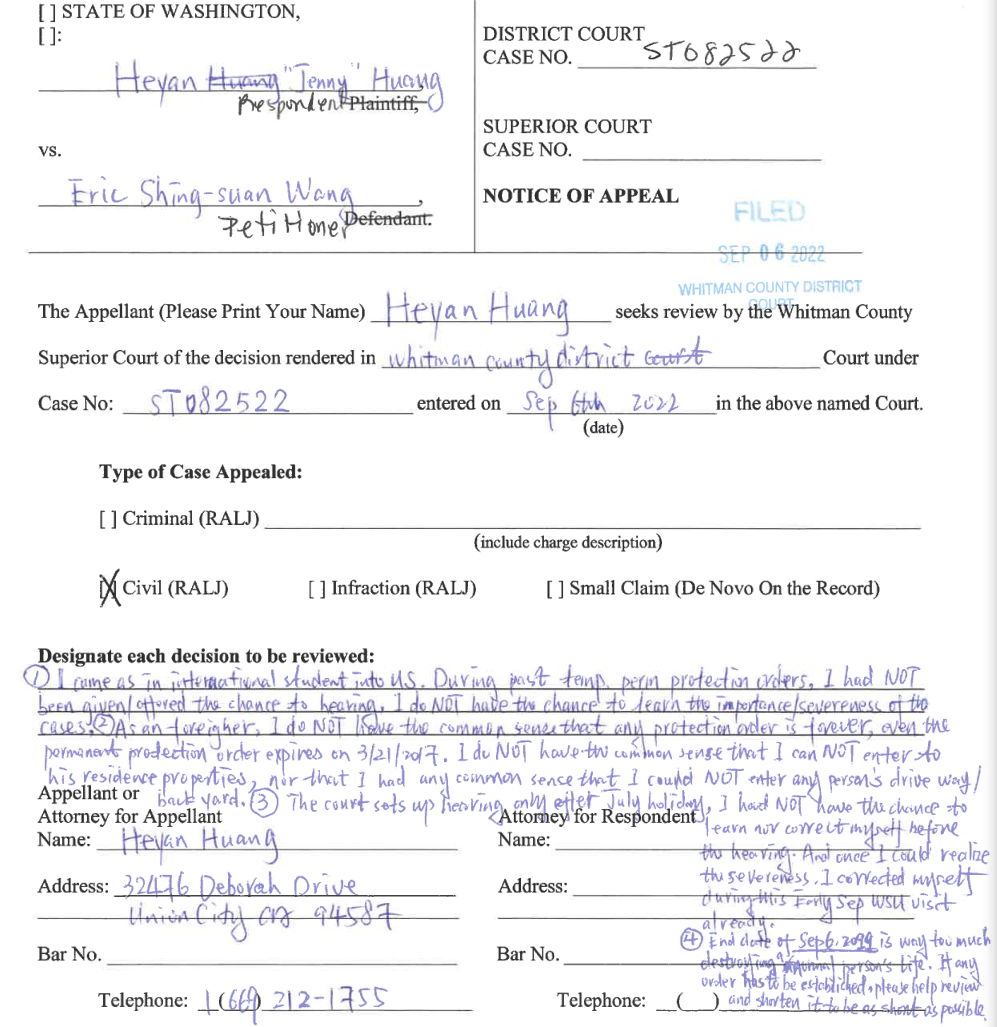 [ ] STATE OF WASHINGTON,
[ ]:
Heyan Huang "Jenny" Huang
Respondent Plaintiff,
vs.
Eric Shing-suan Wang,
Petitioner Defendant.
DISTRICT COURT
CASE NO. ST082522
SUPERIOR COURT
CASE NO.
NOTICE OF APPEAL
FILED
SEP 06 2022
WHITMAN COUNTY DISTRICT
COURT
The Appellant (Please Print Your Name) Heyan Huang seeks review by the Whitman County
Superior Court of the decision rendered in whitman county district Court Court under
Case No: ST082522 entered on Sep 6th 2022 in the above named Court.
(date)
Type of Case Appealed:
[ ] Criminal (RALJ)
(include charge description)
[X] Civil (RALJ) [ ] Infraction (RALJ) [ ] Small Claim (De Novo On the Record)
Designate each decision to be reviewed:
① I came as in international student into US. During past temp. perm protection orders, I had NOT
been given/offered the chance to hearing. I do NOT have the chance to learn the importance/severeness of the
cases. ② As an foreigher, I do NOT have the common sense that any protection order is forever, even the
permanent prodection order expires on 3/21/2017. I do NOT have the common sense that I can NOT enter to
his residence properties, nor that I had any common sense that I could NOT enter any person's drive way/
back yard. ③ The court sets up hearing only after July holiday, I had NOT have the chance to
learn nor correct myself before
the hearing. And once I could realize
the severeness. I corrected myself
during this Early Sep WSU visit
already.
④ End date of Sep 6, 2099 is way too much
destroying a normal person's life. If any
order has to be established, please help review
and shorten it to be as short as possible.
Appellant or
Attorney for Appellant
Name: Heyan Huang
Address: 32476 Deborah Drive
Union City CA 94587
Bar No.
Telephone: 1 (669) 212-1755
Attorney for Respondent
Name:
Address:
Bar No.
Telephone: ( )